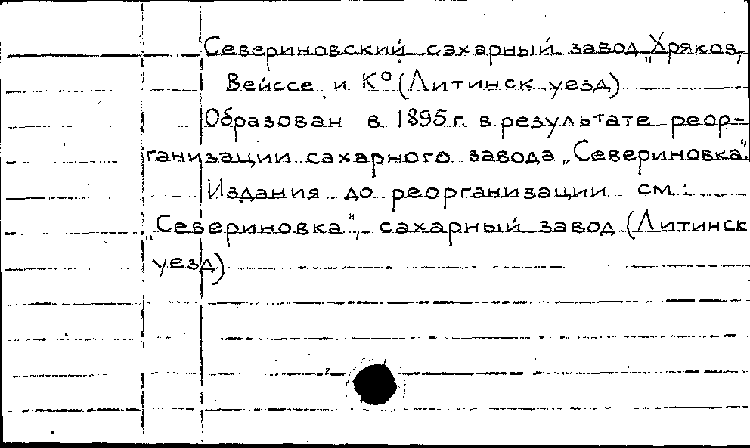 Севериновский сахарный завод „Хряков,
Вейссе и К° (Литинск уезд)
Образован в 1895 г. в результате реор-
ганизации сахарного завода „Севериновка".
Издания до реорганизации см.:
„Севериновка", сахарный завод (Литинск
уезд)